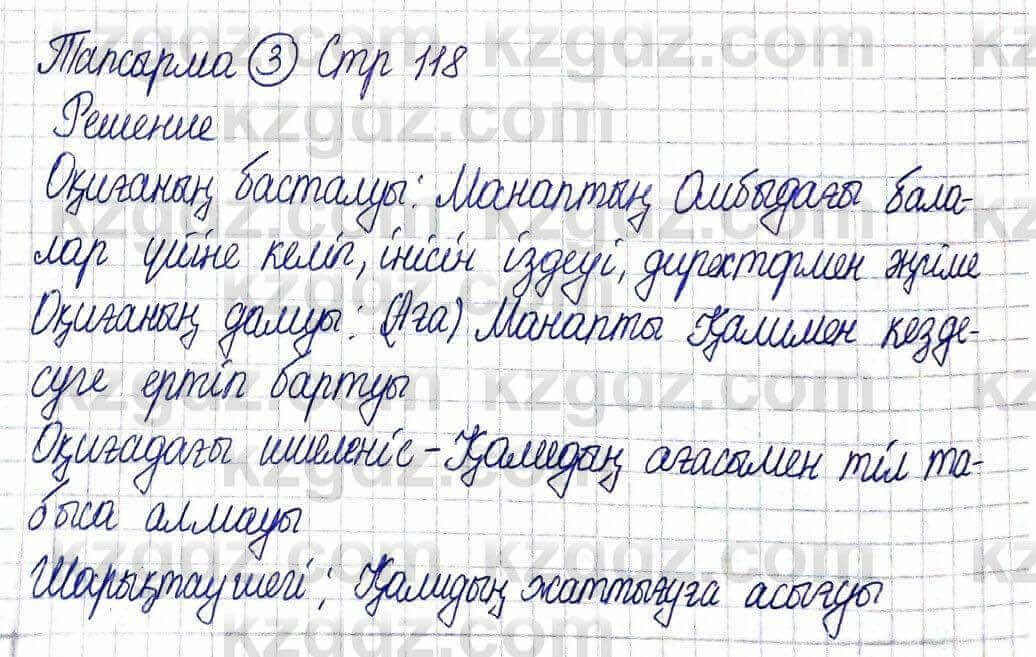 Тапсырма 3 Стр 118
Решение
Оқиғаның басталуы: Манаптың Омбыдағы бала-
лар үйіне келіп, інісін іздеуі, директормен әңгіме
Оқиғаның дамуы: (Аға) Манапты Қалимен кезде-
суге ертіп бартуы
Оқиғадағы шиеленіс - Қалидың ағасымен тіл та-
быса алмауы
Шарықтау шегі; Қалидың жаттығуға асығуы
kzgdz.com